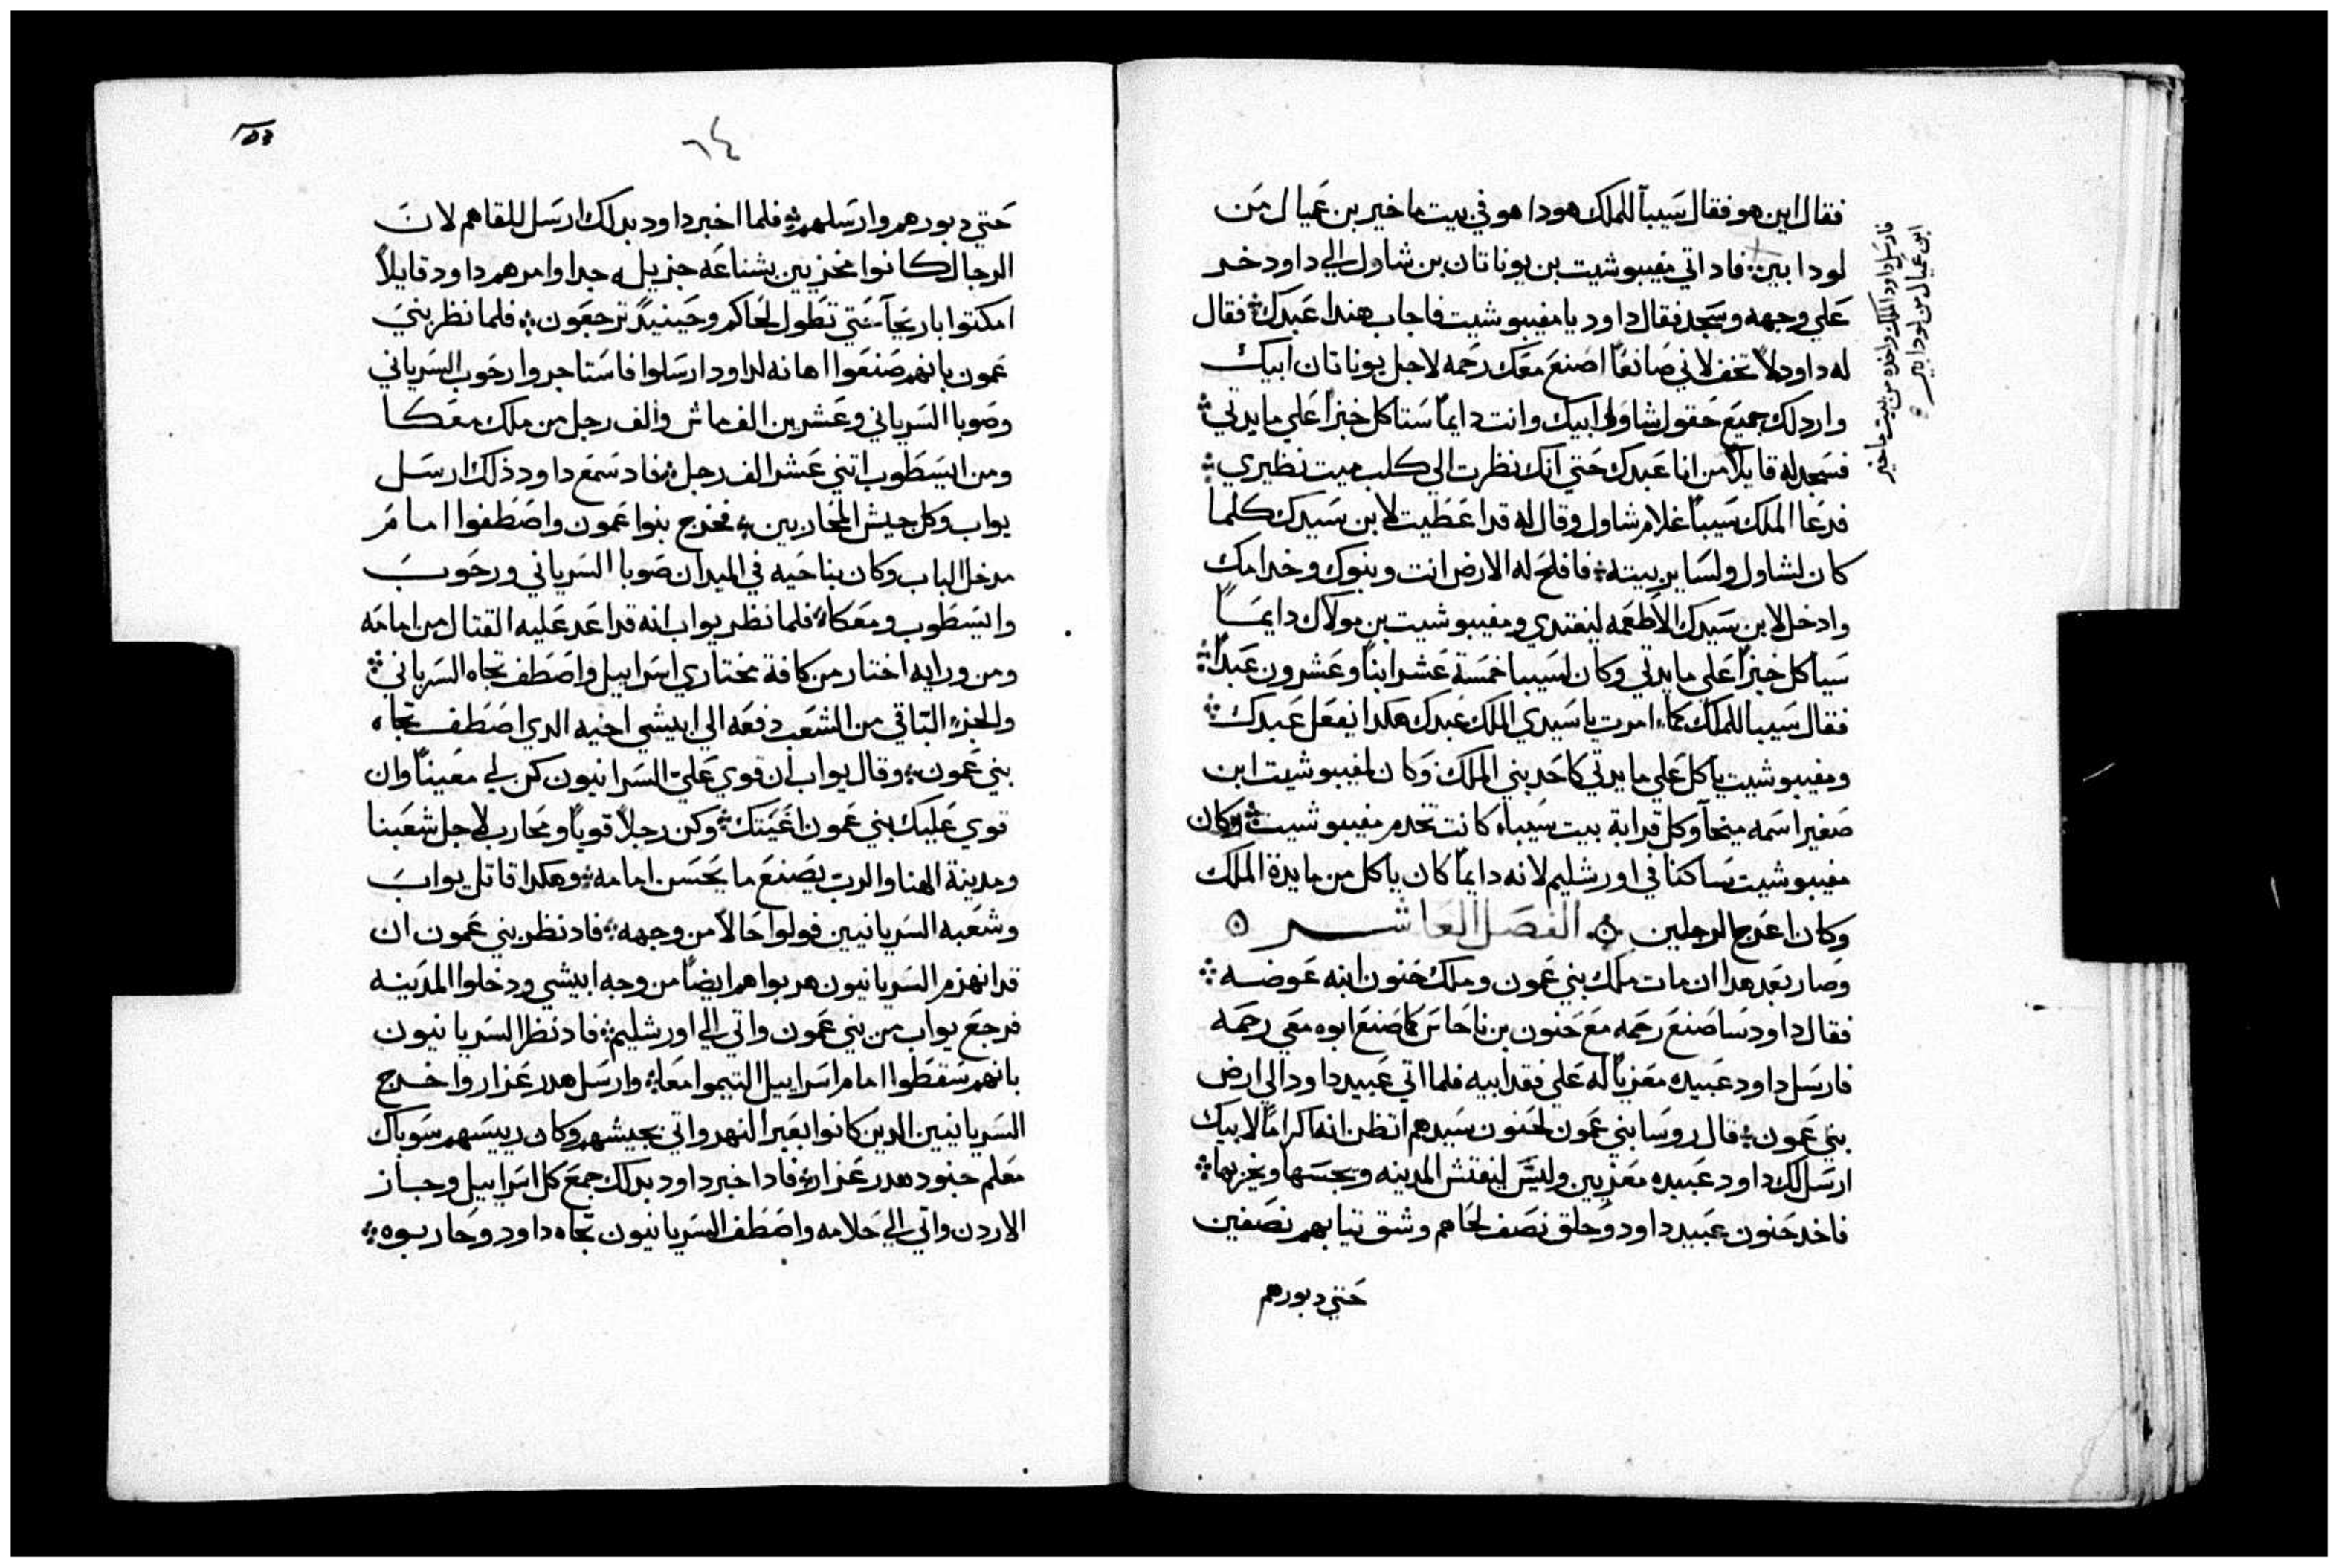 فقال اين هو فقال سيبا للملك هودا هو في بيت ماخير بن عميال من
لودابين فاد اتي مفيبوشيت بن يوناتان بن شاول الي داود خر
علي وجهه وسجد فقال داود يا مفيبوشيت فاجاب هندا عبدك فقال
له داود لا تخف لاني صانعا اصنع معك رحمه لاجل يوناتان ابيك
وارد لك جميع حقول شاول ابيك وانت دايما ستاكل خبزا علي مايدتي
فسجد له قايلا من انا عبدك حتي انك نظرت الي كلب ميت نظيري
فدعا الملك سيبا غلام شاول وقال له قد اعطيت لابن سيدك كلما
كان لشاول ولساير بيته فافلح له الارض انت وبنوك وخدامك
وادخل لابن سيدك الاطعمه ليغتدي ومفيبوشيت بن مولاك دايما
سياكل خبزا علي مايدتي وكان لسيبا خمسة عشر ابنا وعشرون عبدا
فقال سيبا للملك كما امرت يا سيدي الملك عبدك هكدا يفعل عبدك
ومفيبوشيت ياكل علي مايدتي كاحد بني الملك وكان لمفيبوشيت ابن
صغير اسمه ميخا وكل قرابة بيت سيبا كانت تخدم مفيبوشيت وكان
مفيبوشيت ساكنا في اورشليم لانه دايما كان ياكل من مايدة الملك
وكان اعرج الرجلين الفصل العاشر
وصار بعد هدا ان مات ملك بني عمون وملك حنون ابنه عوضه
فقال داود سا صنع رحمه مع حنون بن ناحاس كما صنع ابوه معي رحمه
فارسل داود عبيده معزيا له علي فقد ابيه فلما اتي عبيد داود الي ارض
بني عمون قال روسا بني عمون لحنون سيدهم اتظن انه اكراما لابيك
ارسل لك داود عبيده معزيين وليس ليفتش المدينه ويجسها ويخربها
فاخد حنون عبيد داود وحلق نصف لحاهم وشق تيابهم نصفين
حتي دبورهم
فارسل داود الملك واخده من بيت ماخير
ابن عميال من لودابير
٦٤
حتي دبورهم وارسلهم فلما اخبر داود بدلك ارسل للقاهم لان
الرجال كانوا مخزيين بشناعه جزيله جدا وامرهم داود قايلا
امكتوا باريحا حتي تطول لحاكم وحينيد ترجعون فلما نظر بني
عمون بانهم صنعوا اهانه لداود ارسلوا فاستاجروا رحوب السرياني
وصوبا السرياني وعشرين الف ماش والف رجل من ملك معكا
ومن ايسطوب اتني عشر الف رجل فاد سمع داود ذلك ارسل
يواب وكل جيش المحاربين فخرج بنوا عمون واصطفوا امام
مدخل الباب وكان بناحيه في الميدان صوبا السرياني ورحوب
وايسطوب ومعكا فلما نظر يواب انه قد اعد عليه القتال من امامه
ومن ورايه اختار من كافة مختاري اسراييل واصطف تجاه السرياني
والجزء الباقي من الشعب دفعه الي ابيشي اخيه الدي اصطف تجاه
بني عمون وقال يواب ان قوي علي السريانيون كن لي معينا وان
قوي عليك بني عمون اغيتك وكن رجلا قويا ومحارب لاجل شعبنا
ومدينة الهنا والرب يصنع ما يحسن امامه وهكدا قاتل يواب
وشعبه السريانيين فولوا حالا من وجهه فاد نظر بني عمون ان
قد انهزم السريانيون هربوا هم ايضا من وجه ابيشي ودخلوا المدينه
فرجع يواب من بني عمون واتي الي اورشليم فاد نظر السريانيون
بانهم سقطوا امام اسراييل التيموا معا وارسل هدر عزار واخرج
السريانيين الدين كانوا بعبر النهر واتي بجيشهم وكان رييسهم سوباك
معلم جنود هدر عزار فاد اخبر داود بدلك جمع كل اسراييل وجاز
الاردن واتي الي حلامه واصطف السريانيون تجاه داود وحاربوه